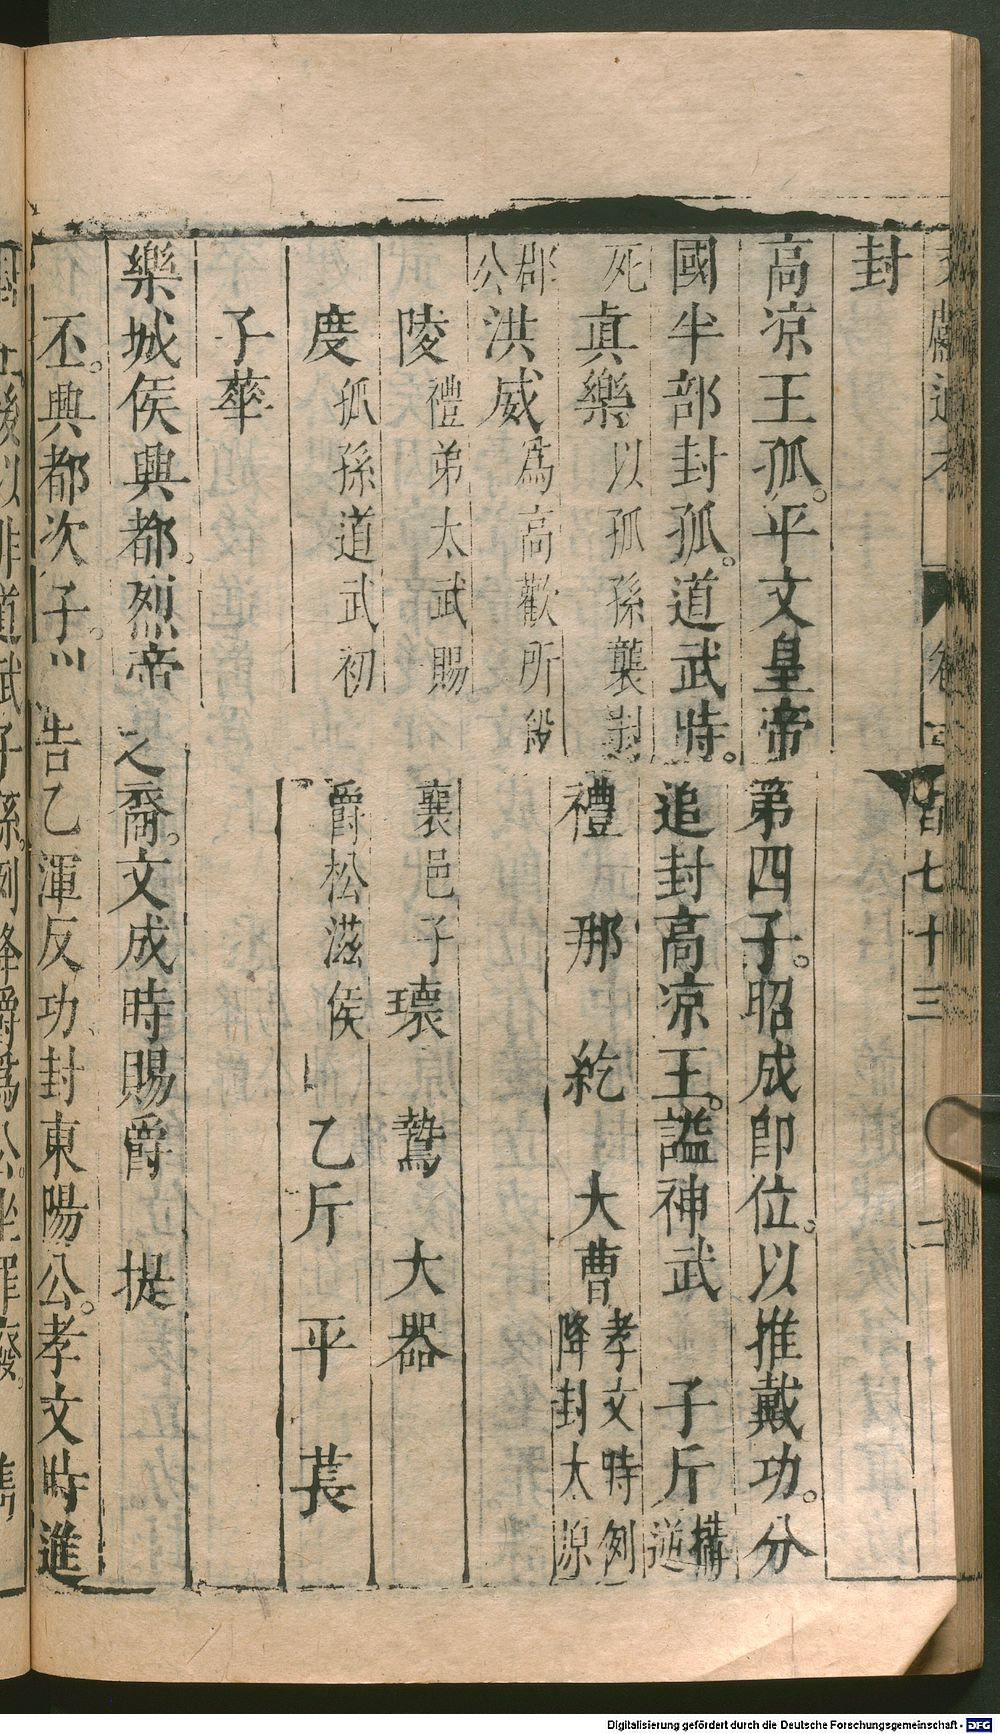 封
高凉王孤。平文皇帝第四子。昭成即位。以推戴功。分
國半部封孤。道武時。追封高凉王。謚神武 子斤 構逆
死 真樂 以孤孫襲封 禮 那 紇 大曹 孝文時例降封太原
郡公 洪威 為高歡所殺
陵 禮弟太武賜襄邑子 瓌 鷙 大器
度 孤孫道武初爵松滋侯 乙斤 平 萇
子華
樂城侯興都。烈帝之裔。文成時賜爵 提
丕。興都次子。告乙渾反功、封東陽公。孝文時進
後以非道武子孫。例降爵為公。坐罪廢。 雋
文獻通考 卷 百七十三 二
Digitalisierung gefördert durch die Deutsche Forschungsgemeinschaft - DFG